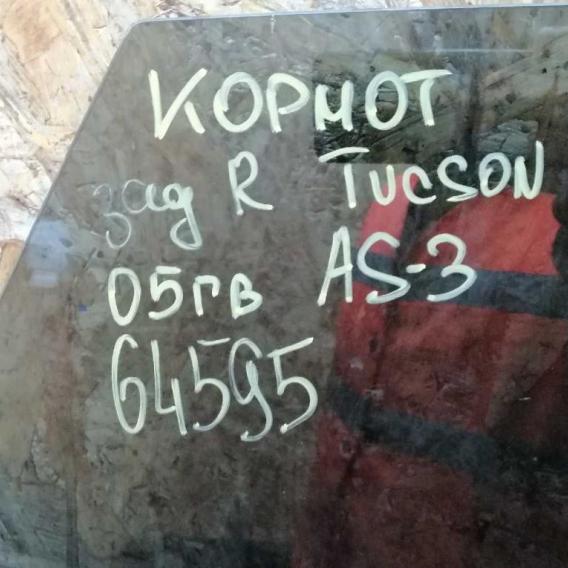 КОРМОТ
зад R TUCSON
05гв AS-3
64595